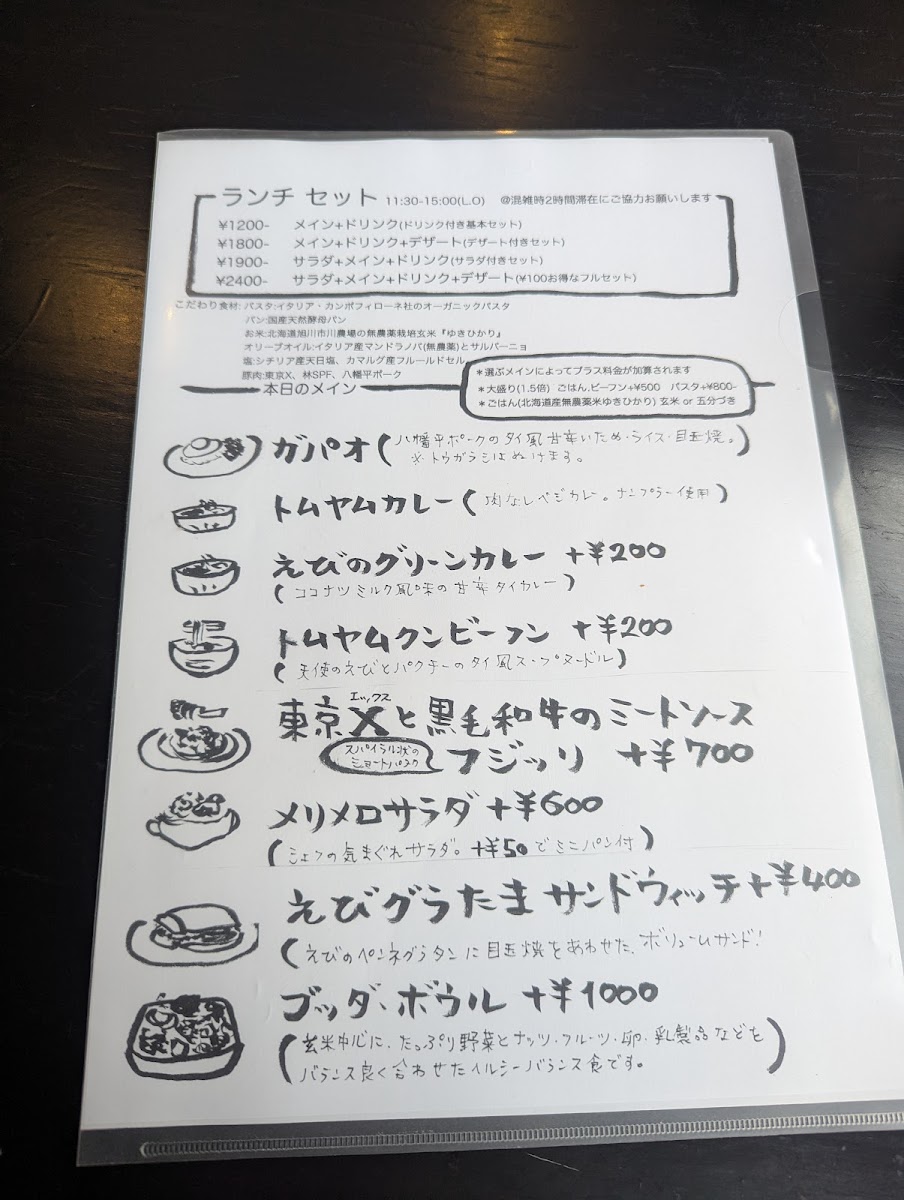 ランチ セット 11:30-15:00(L.O) @混雑時2時間滞在にご協力お願いします
¥1200- メイン+ドリンク(ドリンク付き基本セット)
¥1800- メイン+ドリンク+デザート(デザート付きセット)
¥1900- サラダ+メイン+ドリンク(サラダ付きセット)
¥2400- サラダ+メイン+ドリンク+デザート(¥100お得なフルセット)
こだわり食材: パスタ:イタリア・カンポフィローネ社のオーガニックパスタ
パン:国産天然酵母パン
お米:北海道旭川市川農場の無農薬栽培玄米『ゆきひかり』
オリーブオイル:イタリア産マンドラノバ(無農薬)とサルバーニョ
塩:シチリア産天日塩、カマルグ産フルールドセル
豚肉:東京X、林SPF、八幡平ポーク
*選ぶメインによってプラス料金が加算されます
*大盛り(1.5倍) ごはん.ビーフン+¥500 パスタ+¥800-
*ごはん(北海道産無農薬米ゆきひかり) 玄米 or 五分づき
本日のメイン
ガパオ(八幡平ポークのタイ風甘辛いため・ライス・目玉焼。
※トウガラシはぬけます。)
トムヤムカレー(肉なしベジカレー。ナンプラー使用)
えびのグリーンカレー +¥200
(ココナツミルク風味の甘辛タイカレー)
トムヤムクンビーフン +¥200
(天使のえびとパクチーのタイ風スープヌードル)
エックス
東京Xと黒毛和牛のミートソース
スパイラル状の
ショートパスタ
フジッリ +¥700
メリメロサラダ +¥600
(シェフの気まぐれサラダ。+¥50でミニパン付)
えびグラたまサンドウィッチ+¥400
(えびのペンネグラタンに目玉焼をあわせた、ボリュームサンド!)
ブッダ・ボウル +¥1000
(玄米中心に、たっぷり野菜とナッツ・フルーツ・卵・乳製品などを
バランス良く合わせたヘルシーバランス食です。)